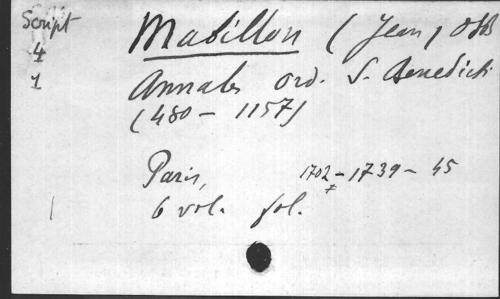 Script
4
1
Mabillon (Jean) OSB
Annales ord. S. Benedicti
(480 - 1157)
Paris, 1702 - 1739 - 45
6 vol. fol.